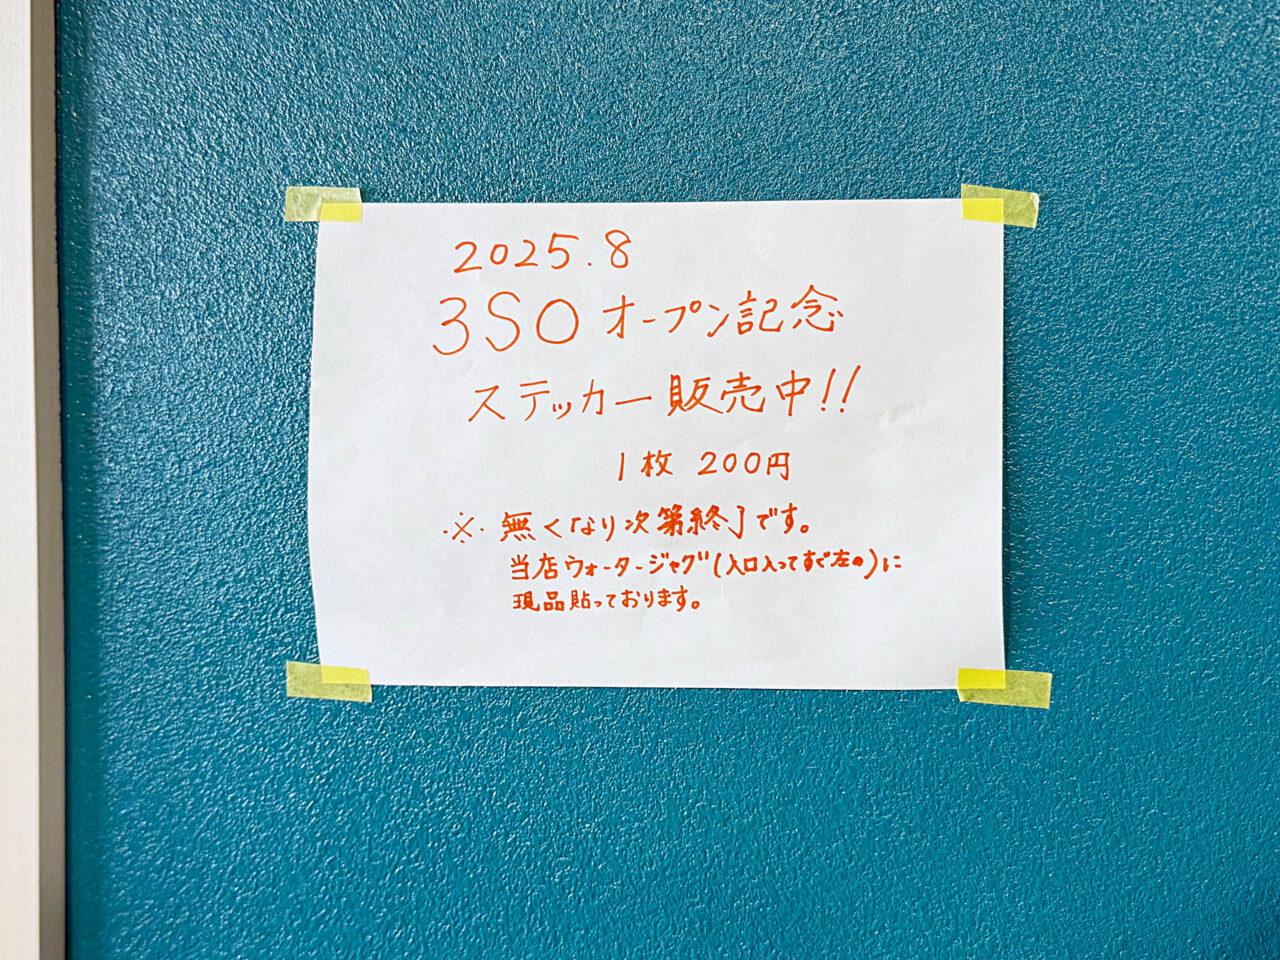 2025.8
3SO オープン記念
ステッカー販売中!!
1枚 200円
※ 無くなり次第終了です。
当店ウォータージャグ(入口入ってすぐ左の)に
現品貼っております。